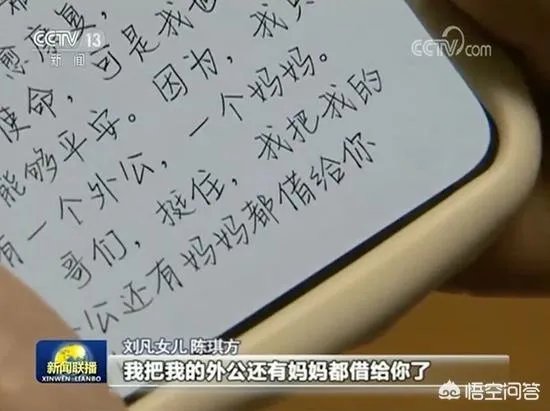 CCTV 13
新闻
CCTV.com
愈康复,
使命,可是我也
能够平安。因为,我只
有一个外公,一个妈妈。
哥们,挺住,我把我的
外公还有妈妈都借给你
刘凡女儿 陈琪方
新闻联播
XINWEN LIANBO
我把我的外公还有妈妈都借给你了
悟空问答